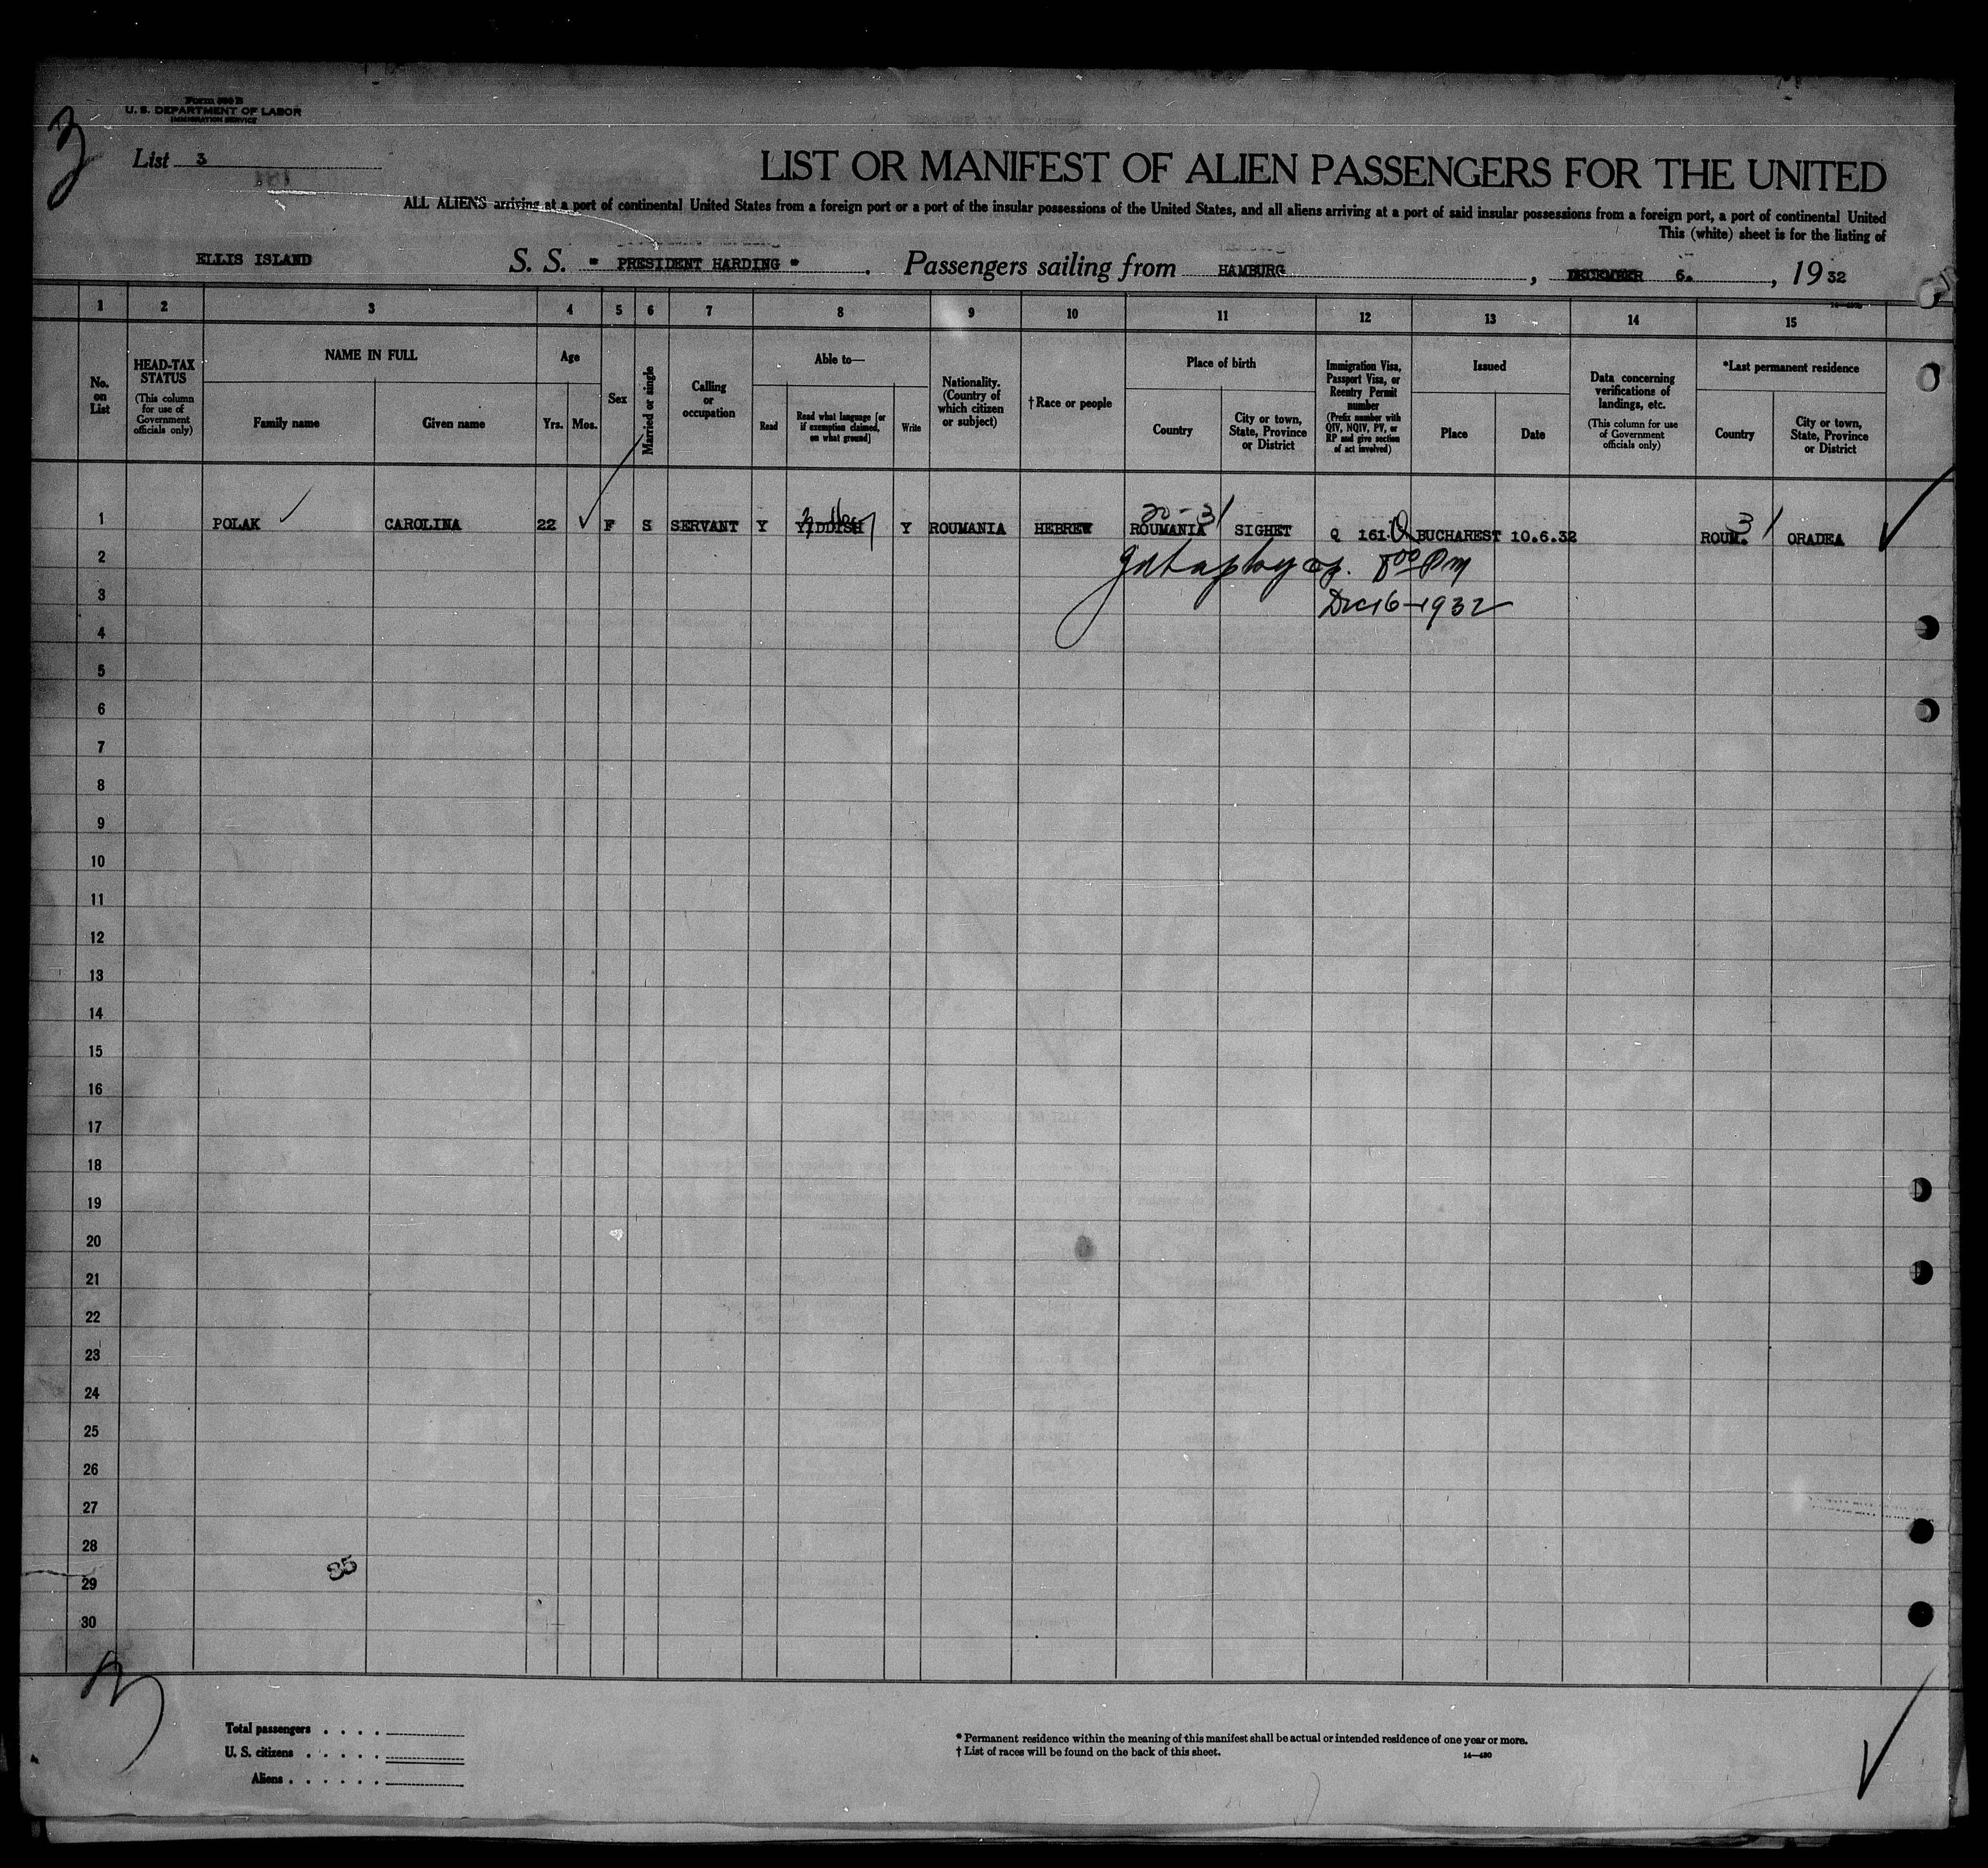 Form 500 B
U. S. DEPARTMENT OF LABOR
IMMIGRATION SERVICE
3
List 3
LIST OR MANIFEST OF ALIEN PASSENGERS FOR THE UNITED
ALL ALIENS arriving at a port of continental United States from a foreign port or a port of the insular possessions of the United States, and all aliens arriving at a port of said insular possessions from a foreign port, a port of continental United
This (white) sheet is for the listing of
ELLIS ISLAND S. S. " PRESIDENT HARDING " . Passengers sailing from HAMBURG , DECEMBER 6. , 19 32
1 2 3 4 5 6 7 8 9 10 11 12 13 14 15
No. on List
HEAD-TAX STATUS (This column for use of Government officials only)
NAME IN FULL
Family name Given name
Age
Yrs. Mos.
Sex
Married or single
Calling or occupation
Able to—
Read Read what language [or if exemption claimed, on what ground] Write
Nationality. (Country of which citizen or subject)
† Race or people
Place of birth
Country City or town, State, Province or District
Immigration Visa, Passport Visa, or Reentry Permit number (Prefix number with QIV, NQIV, PV, or RP and give section of act involved)
Issued
Place Date
Data concerning verifications of landings, etc. (This column for use of Government officials only)
*Last permanent residence
Country City or town, State, Province or District
20 - 31 3 1
1 POLAK CAROLINA 22 F S SERVANT Y YIDDISH Y ROUMANIA HEBREW ROUMANIA SIGHET Q 161 BUCHAREST 10.6.32 ROUM. ORADEA
2
8 00 Pm
3
Dec 16-1932
4
5
6
7
8
9
10
11
12
13
14
15
16
17
18
19
20
21
22
23
24
25
26
27
28
85
29
30
Total passengers . . . .
U. S. citizens . . . . .
Aliens . . . . . .
* Permanent residence within the meaning of this manifest shall be actual or intended residence of one year or more.
† List of races will be found on the back of this sheet.
14—430